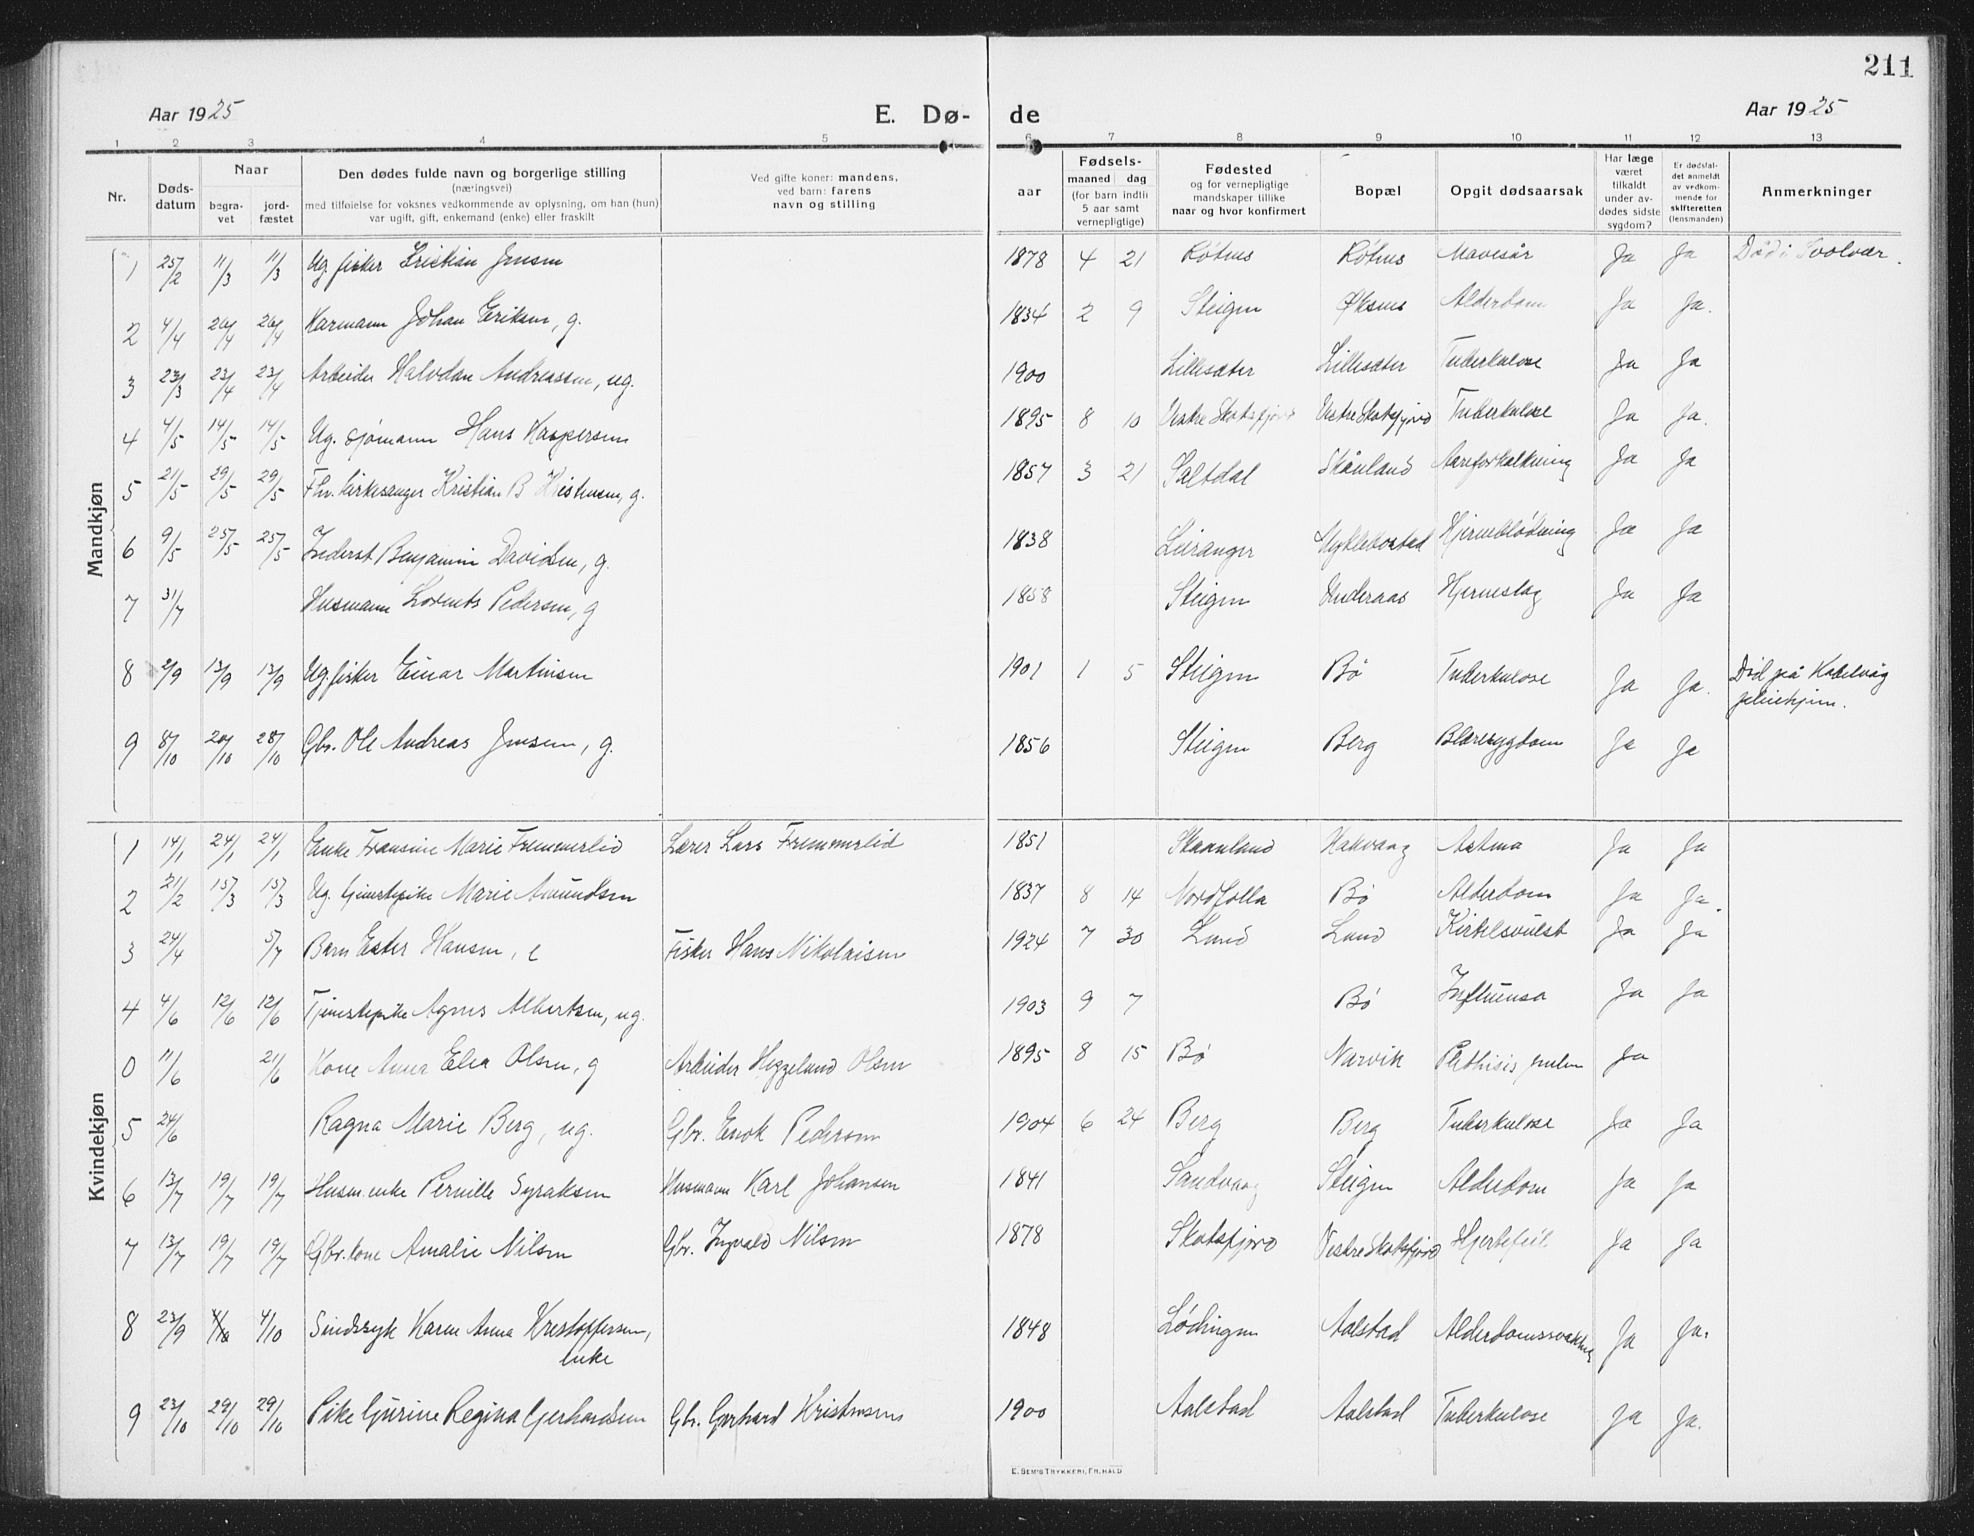 211
Aar 1925 E. Dø- de Aar 1925
1 2 3 4 5 6 7 8 9 10 11 12 13
Nr. Døds-datum Naar begra-vet jord-fæstet Den dødes fulde navn og borgerlige stilling (næringsvei) med tilføielse for voksnes vedkommende av oplysning, om han (hun) var ugift, gift, enkemand (enke) eller fraskilt Ved gifte koner: mandens, ved barn: farens navn og stilling aar Fødsels- maaned dag (for barn indtil 5 aar samt vernepligtige) Fødested og for vernepligtige mandskaper tillike naar og hvor konfirmert Bopæl Opgit dødsaarsak Har læge været tilkaldt under av-dødes sidste sygdom? Er dødsfal-det anmeldt av vedkom-mende for skifteretten (lensmanden) Anmerkninger
Mandkjøn
1 25/2 11/3 11/3 Ug. fisker Kristian Jensen 1878 4 21 Røtnes Røtnes Mavesår Ja Ja Død i Svolvær.
2 4/4 26/4 26/4 Kaarmann Johan Eriksen, g. 1834 2 9 Steigen Øksnes Alderdom Ja Ja.
3 23/3 23/4 23/4 Arbeider Halvdan Andreassen, ug. 1900 Lillesæter Lillesæter Tuberkulose Ja Ja
4 4/5 14/5 14/5 Ug. sjømann Hans Kaspersen 1895 8 10 Vestre Skotsfjord Vestre Skotsfjord Tuberkulose Ja Ja.
5 21/5 29/5 29/5 Fhv. kirkesanger Kristian B Kristensen, g. 1857 3 21 Saltdal Skånland Aareforkalkning Ja Ja
6 9/5 25/5 25/5 Inderst Benjamin Davidsen, g. 1838 Leiranger Myklebostad Hjerneblødning Ja Ja
7 31/7 Husmann Lorents Pedersen, g 1858 Steigen Inderaas Hjerneslag Ja Ja
8 2/9 13/9 13/9 Ug. fisker Einar Martinsen 1901 1 5 Steigen Bø Tuberkulose Ja Ja. Død på Kabelvåg
pleiehjem.
9 8/10 20/10 28/10 Gbr. Ole Andreas Jensen, g. 1856 Steigen Berg Blæresygdom Ja Ja
Kvindekjøn
1 14/1 24/1 24/1 Enke Fransine Marie Fremmerlid Lærer Lars Fremmerlid 1851 Skaanland Hakvaag Astma Ja Ja
2 21/2 15/3 15/3 Ug. tjenestepike Marie Amundsen 1837 8 14 Nordfolla Bø Alderdom Ja Ja.
3 24/4 5/7 Barn Ester Hansen, e Fisker Hans Nikolaisen 1924 7 30 Lund Lund Kirtelsvulst Ja Ja
4 4/6 12/6 12/6 Tjenestepike Agnes Albertsen, ug. 1903 9 7 Bø Influensa Ja Ja
0 11/6 21/6 Kone Anna Elea Olsen, g Arbeider Heggelund Olsen 1895 8 15 Bø Narvik Phthisis pulm Ja
5 24/6 Ragna Marie Berg, ug. Gbr. Enok Pedersen 1904 6 24 Berg Berg Tuberkulose Ja Ja
6 13/7 19/7 19/7 Husm.enke Pernille Syraksen Husmann Karl Johansen 1841 Sandvaag Steigen Alderdom Ja Ja
7 13/7 19/7 19/7 Gbr.kone Amalie Nilsen Gbr. Ingvald Nilsen 1878 Skotsfjord Vestre Skotsfjord Hjertefeil. Ja Ja
8 23/9 4/10 4/10 Sindssyk Karen Anna Kristoffersen, 1848 Lødingen Aalstad Alderdomssvakhet Ja Ja.
enke
9 23/10 29/10 29/10 Pike Gurine Regina Gerhardsen Gbr. Gerhard Kristensen 1900 Aalstad Aalstad Tuberkulose Ja Ja.
E. SEM'S TRYKKERI, FR.HALD